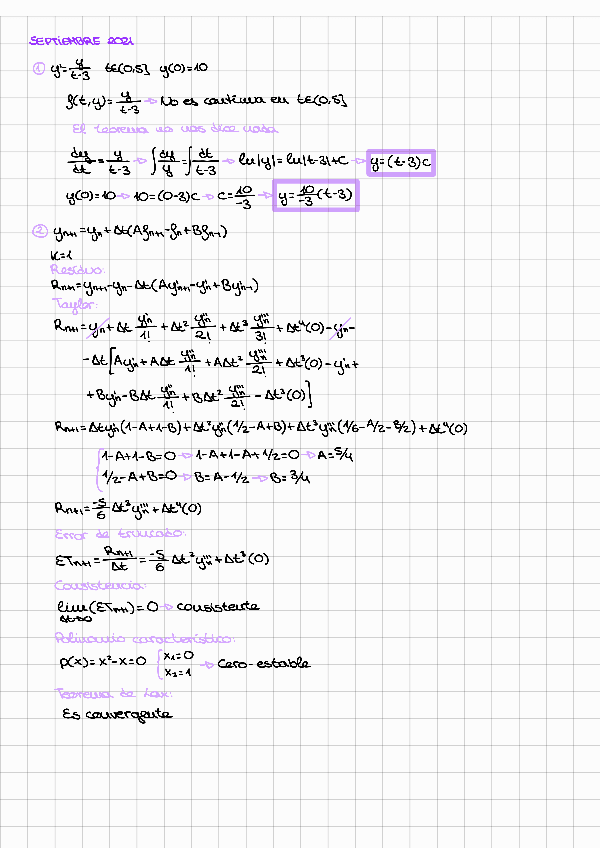 SEPTIEMBRE 2021
① y' = y/(t-3)   t∈(0,5]   y(0)=10
f(t,y) = y/(t-3) → No es continua en t∈(0,5]
El teorema no nos dice nada
dy/dt = y/(t-3) → ∫dy/y = ∫dt/(t-3) → ln|y| = ln|t-3|+C → y=(t-3)C
y(0)=10 → 10=(0-3)C → C=10/-3 → y=10/-3 (t-3)
② yn+1 = yn + Δt(Afn+1 - fn + Bfn-1)
K=1
Residuo:
Rn+1 = yn+1 - yn - Δt(Ay'n+1 - y'n + By'n-1)
Taylor:
Rn+1 = yn + Δt y'n/1! + Δt² y''n/2! + Δt³ y'''n/3! + Δt⁴(0) - yn -
- Δt[Ay'n + AΔt y''n/1! + AΔt² y'''n/2! + Δt³(0) - y'n +
+ By'n - BΔt y''n/1! + BΔt² y'''n/2! - Δt³(0)]
Rn+1 = Δty'n(1-A+1-B) + Δt²y''n(1/2-A+B) + Δt³y'''n(1/6-A/2-B/2) + Δt⁴(0)
{ 1-A+1-B=0 → 1-A+1-A+1/2=0 → A=5/4
1/2-A+B=0 → B=A-1/2 → B=3/4
Rn+1 = -5/6 Δt³y'''n + Δt⁴(0)
Error de truncado:
ETn+1 = Rn+1/Δt = -5/6 Δt²y'''n + Δt³(0)
Consistencia:
lim(ETn+1) = 0 → consistente
Δt→0
Polinomio característico:
p(x) = x²-x = 0 { x1=0
x2=1 → Cero-estable
Teorema de Lax:
Es convergente